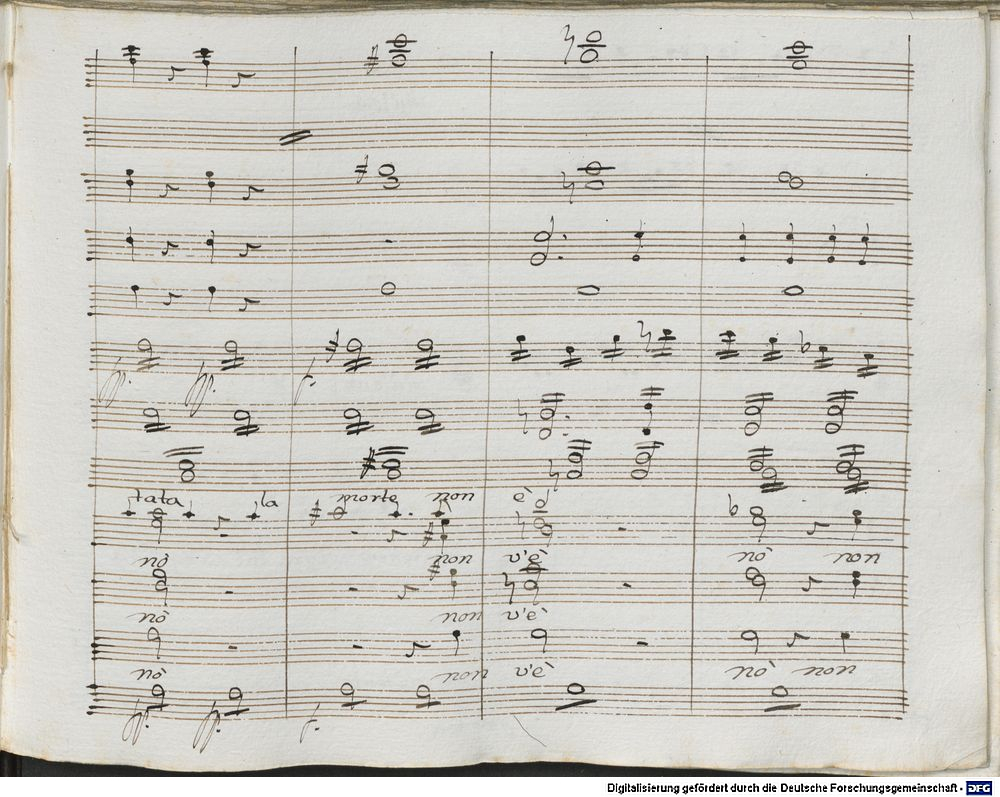 fp. fp. f.
tata la morte non è
nò non v'è nò non
nò non v'è
nò non v'è nò non
fp. fp. f.
Digitalisierung gefördert durch die Deutsche Forschungsgemeinschaft - DFG